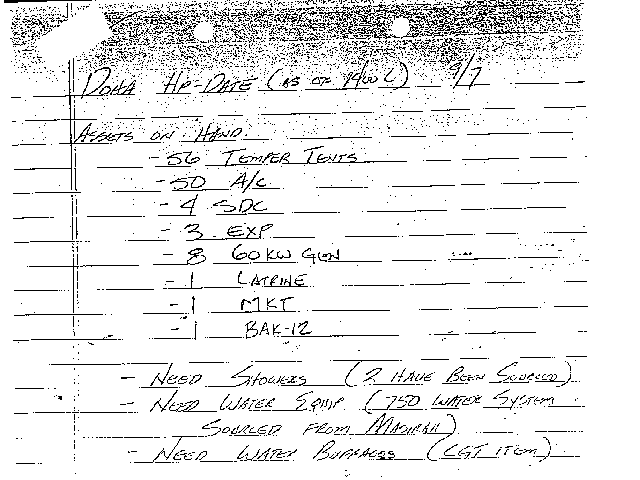 DOHA UP-DATE (AS OF 1400L) 9/7
ASSETS ON HAND
- 56 TEMPER TENTS
- 50 A/C
- 4 SDC
- 3 EXP
- 8 60KW GEN
- 1 LATRINE
- 1 MKT
- 1 BAK-12
- NEED SHOWERS (2 HAVE BEEN SOURCED)
- NEED WATER EQUIP (750 WATER SYSTEM
SOURCED FROM MASIRAH)
- NEED WATER (CGT ITEM)